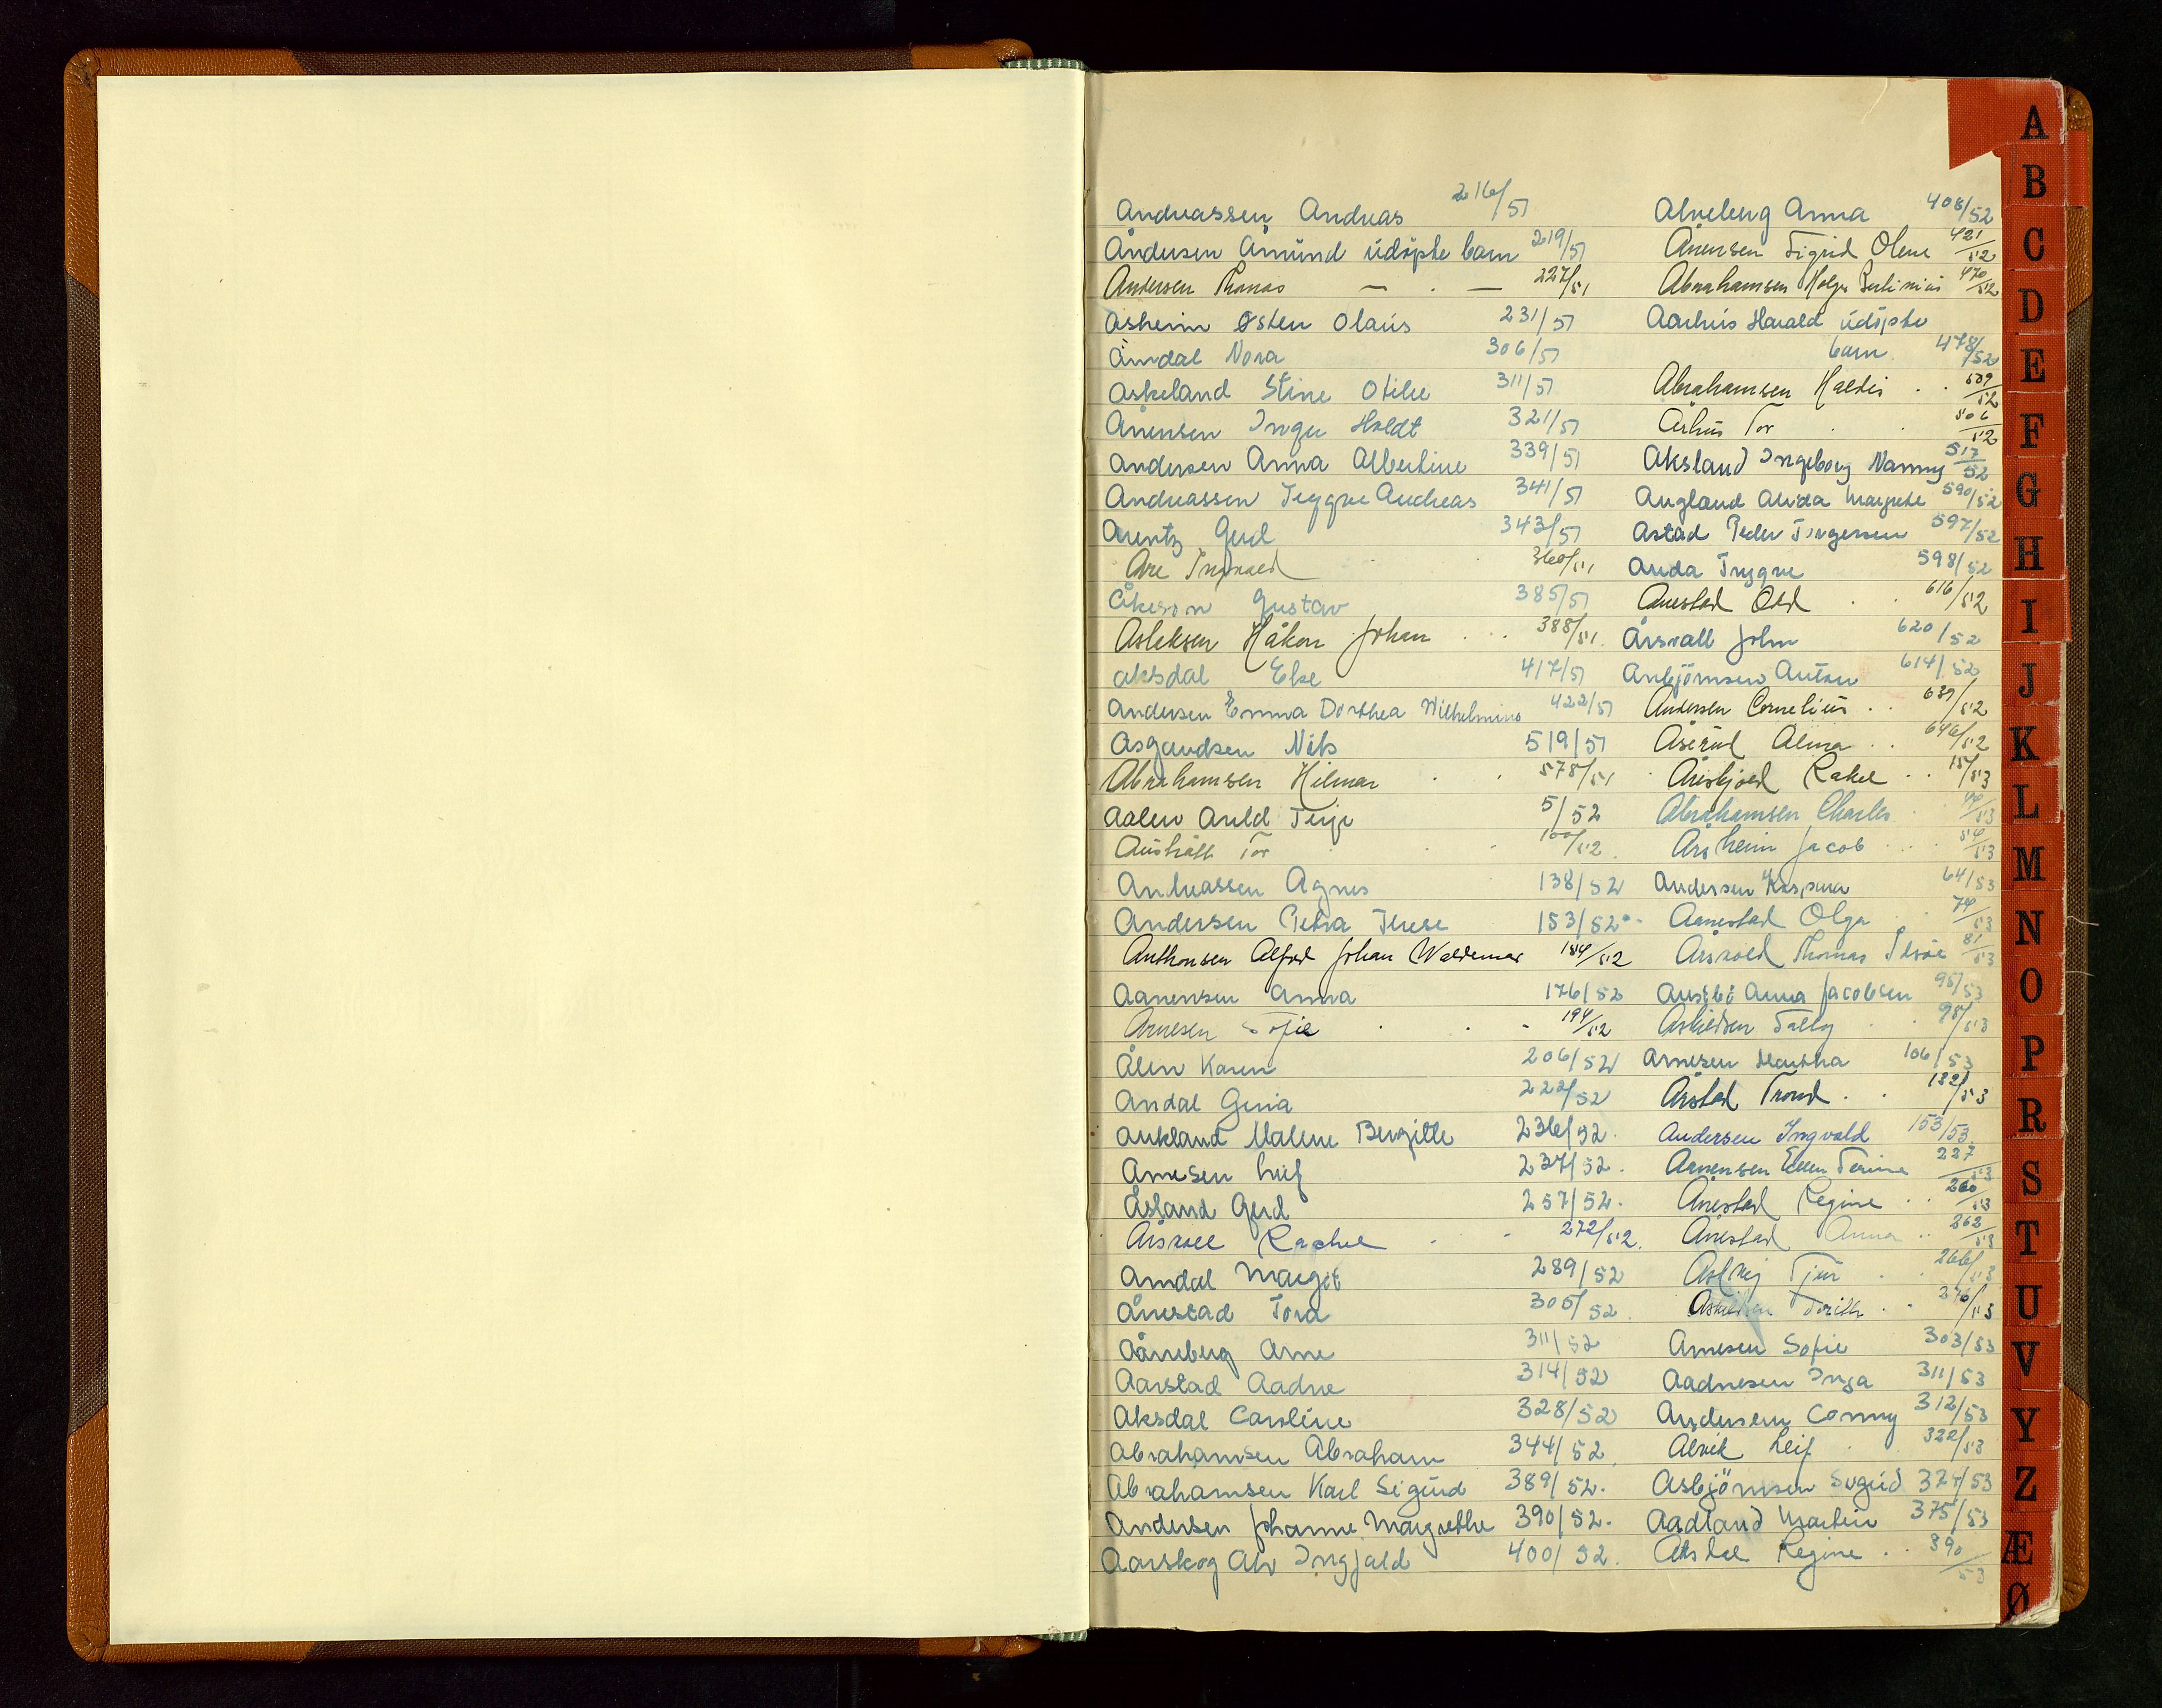 Andreassen Andreas 216/51
Åndersen Åmund udöpte barn 219/51
Andersen Thomas — . — 227/51
Åsheim Østen Olaus 231/51
Åmdal Nora 306/51
Askeland Stine Otilie 311/51
Ånensen Inger Holdt 321/51
Andersen Anna Albertine 339/51
Andreassen Trygve Andreas 341/51
Arentz Gerd 343/51
Are Ingvald 360/51
Åkeson Gustav 385/51
Asleksen Håkon Johan 388/51
Aksdal Else 417/51
Andersen Emma Dorthea Wilhelmine 422/51
Asgautsen Nils 519/51
Abrahamsen Hilmar 578/51
Aalen Arild Terje 5/52
Austrått Tor 100/52
Andreassen Agnes 138/52
Andersen Petra Terese 153/52
Anthonsen Alfred Johan Waldemar 154/52
Aanensen Anna 176/52
Arnesen Sofie 194/52
Ålen Karen 206/52
Andal Gina 222/52
Aukland Malene Bergitte 236/52
Arnesen Leif 237/52
Åsland Gerd 257/52
Årsvoll Rachel 272/52
Amdal Margit 289/52
Ånestad Tora 305/52
Åneberg Arne 311/52
Aarstad Aadne 314/52
Aksdal Caroline 328/52
Abrahamsen Abraham 344/52
Abrahamsen Karl Sigurd 389/52
Andersen Johanne Margrethe 390/52
Aarskog Alv Ingjald 400/52
Alneberg Anna 408/52
Ånensen Sigrid Olene 421/52
Abrahamsen Holger 470/52
Aarhus Harald udöpte
barn 478/52
Abrahamsen Haldis 509/52
Århus Tor 506/52
Aksland Ingeborg Nanny 517/52
Augland Alvida Margrethe 590/52
Åstad Peder Torgersen 597/52
Auda Trygve 598/52
Anestad Odd 616/52
Årsvoll John 620/52
Asbjörnsen Anton 614/52
Andersen Cornelius 639/52
Åserud Alma 646/52
Areskjold Rakel 15/53
Abrahamsen Charles 40/53
Årsheim Jacob 54/53
Andersen Kaspara 64/53
Aanestad Olga 74/53
Årsvold Thomas 81/53
Austbö Anna Jacobsen 95/53
Askildsen Tally 98/53
Arnesen Martha 106/53
Årstad Trond 132/53
Andersen Ingvald 153/53
Aanensen Ellen Serine 227/53
Ånestad Regine 260/53
Ånestad Anna 262/53
266/53
Askildsen Torill 276/53
Arnesen Sofie 303/53
Aadnesen Inga 311/53
Andersen Conny 312/53
Alvik Leif 322/53
Asbjörnsen Sigrid 374/53
Aadland Martin 375/53
Regine 390/53
A
B
C
D
E
F
G
H
I
J
K
L
M
N
O
P
R
S
T
U
V
Y
Z
Æ
Ø